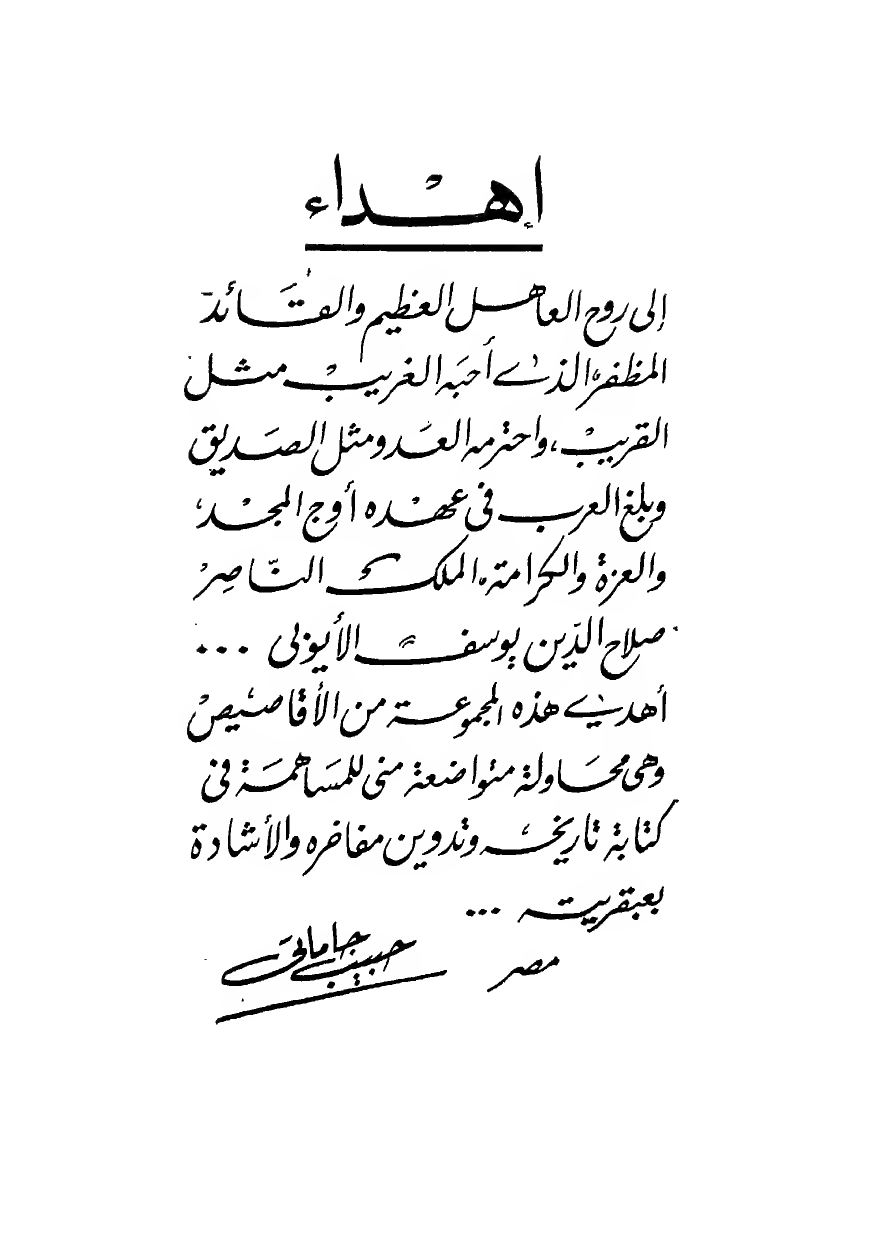 إهداء
إلى روح العاهل العظيم والقائد
المظفر، الذي أحبه الغريب مثل
القريب، واحترمه العدو مثل الصديق
وبلغ العرب في عهده أوج المجد،
والعزة والكرامة، الملك النّاصر
صلاح الدّين يوسف الأيّوبي ...
أهدي هذه المجموعة من الأقاصيص
وهي محاولة متواضعة مني للمساهمة في
كتابة تاريخه وتدوين مفاخره والأشادة
بعبقريته ...
مصر حبيب جاماتي